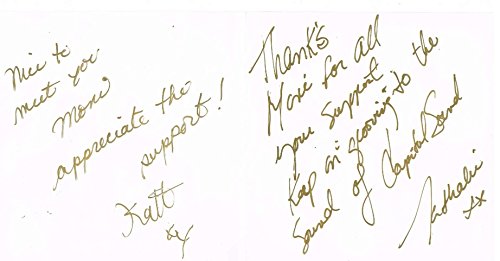 Nice to
meet you
Moné
appreciate the
support!
Katt
xx
Thank's
Moné for all
your support
Keep on grooving to the
Sound of Capital Sound
Nathalie
xx